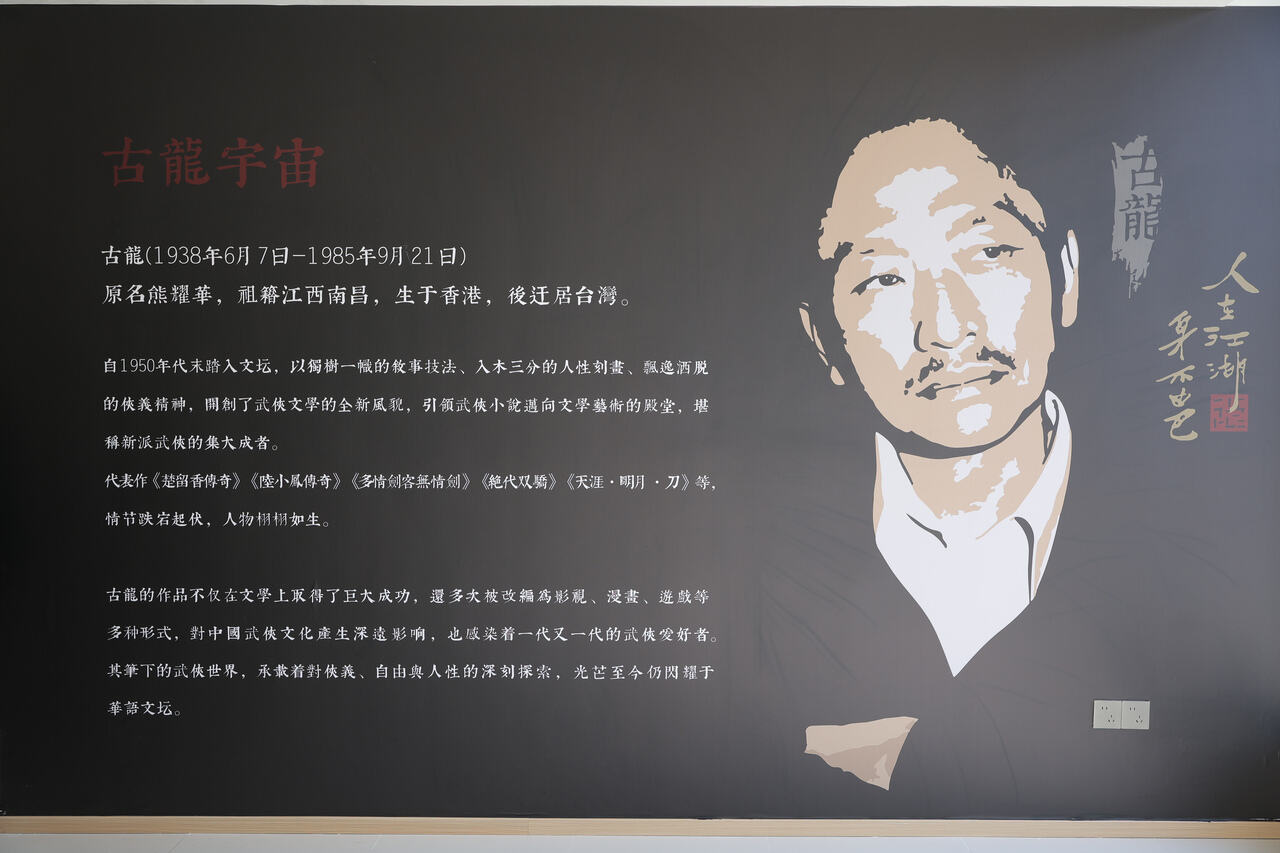 古龍宇宙
古龍(1938年6月7日-1985年9月21日)
原名熊耀華，祖籍江西南昌，生于香港，後迁居台灣。
自1950年代末踏入文坛，以獨樹一幟的敘事技法、入木三分的人性刻畫、飄逸洒脱
的俠義精神，開創了武俠文學的全新風貌，引領武俠小說邁向文學藝術的殿堂，堪
稱新派武俠的集大成者。
代表作《楚留香傳奇》《陸小鳳傳奇》《多情劍客無情劍》《絕代双驕》《天涯·明月·刀》等，
情节跌宕起伏，人物栩栩如生。
古龍的作品不仅在文學上取得了巨大成功，還多次被改編為影視、漫畫、遊戲等
多种形式，對中國武俠文化產生深遠影响，也感染着一代又一代的武俠爱好者。
其筆下的武俠世界，承載着對俠義、自由與人性的深刻探索，光芒至今仍閃耀于
華語文坛。
古龍
人在江湖
身不由己